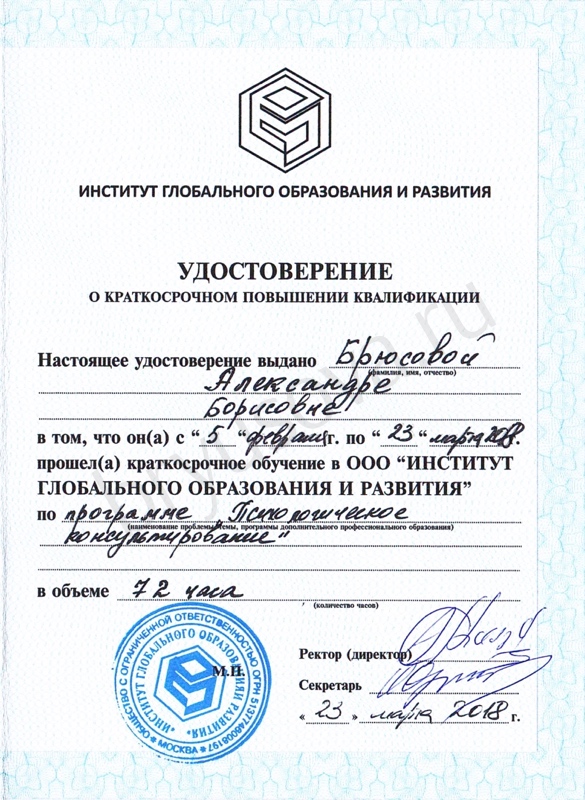 ИНСТИТУТ ГЛОБАЛЬНОГО ОБРАЗОВАНИЯ И РАЗВИТИЯ
УДОСТОВЕРЕНИЕ
О КРАТКОСРОЧНОМ ПОВЫШЕНИИ КВАЛИФИКАЦИИ
Настоящее удостоверение выдано Брюсовой
(фамилия, имя, отчество)
Александре
Борисовне
в том, что он(а) с “ 5 “ февраля г. по “ 23 “ марта 2018 г.
прошел(а) краткосрочное обучение в ООО “ИНСТИТУТ
ГЛОБАЛЬНОГО ОБРАЗОВАНИЯ И РАЗВИТИЯ”
по программе „Психологическое
(наименование проблемы, темы, программы дополнительного профессионального образования)
консультирование"
в объеме 72 часа
(количество часов)
ОБЩЕСТВО С ОГРАНИЧЕННОЙ ОТВЕТСТВЕННОСТЬЮ ОГРН 5137746008197
* МОСКВА *
"ИНСТИТУТ ГЛОБАЛЬНОГО ОБРАЗОВАНИЯ И РАЗВИТИЯ"
М.П.
Ректор (директор)
Секретарь
« 23 » марта 2018 г.